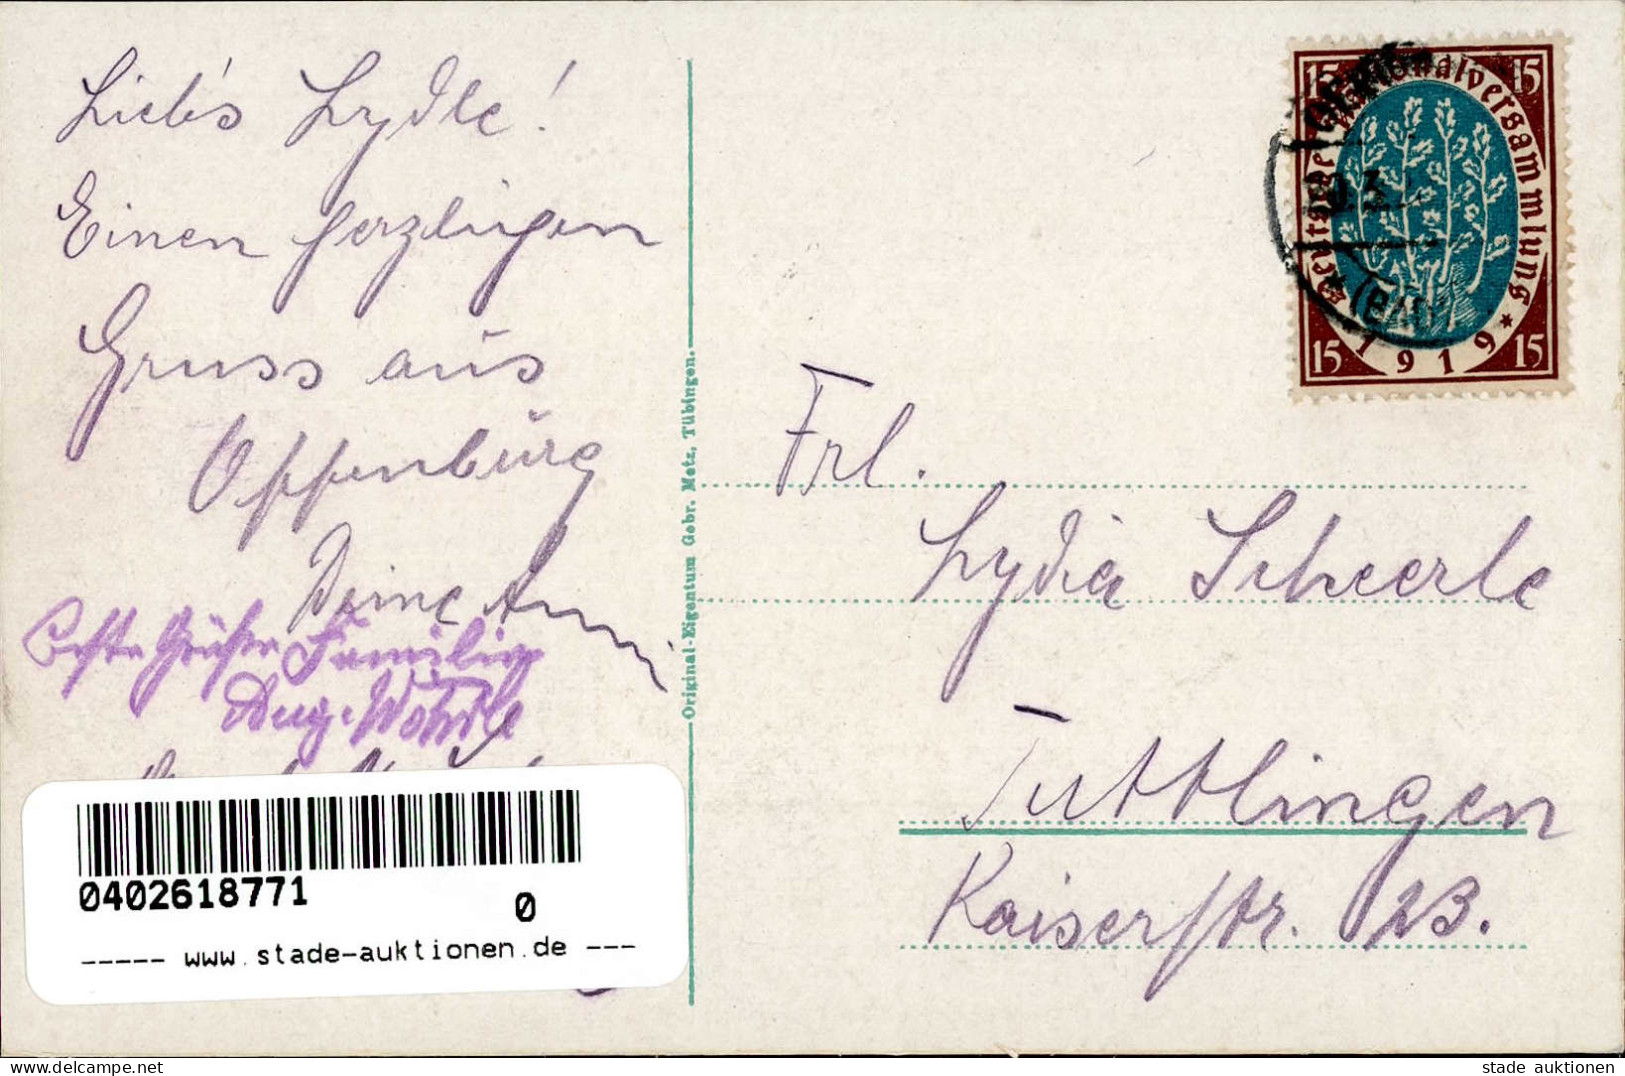 Lieb's Lydle!
Einen herzlichen
Gruss aus
Offenburg
Deine Anni
Beste Grüße Familie
Aug. Wöhrle
Original-Eigentum Gebr. Metz, Tübingen.
15 15
Deutsche Nationalversammlung
* 1919 *
15 15
(BAD
Frl.
Lydia Scheerle
Tuttlingen
Kaiserstr. 23.
0402618771
0
----- www.stade-auktionen.de ---
www.delcampe.net
stade auktionen